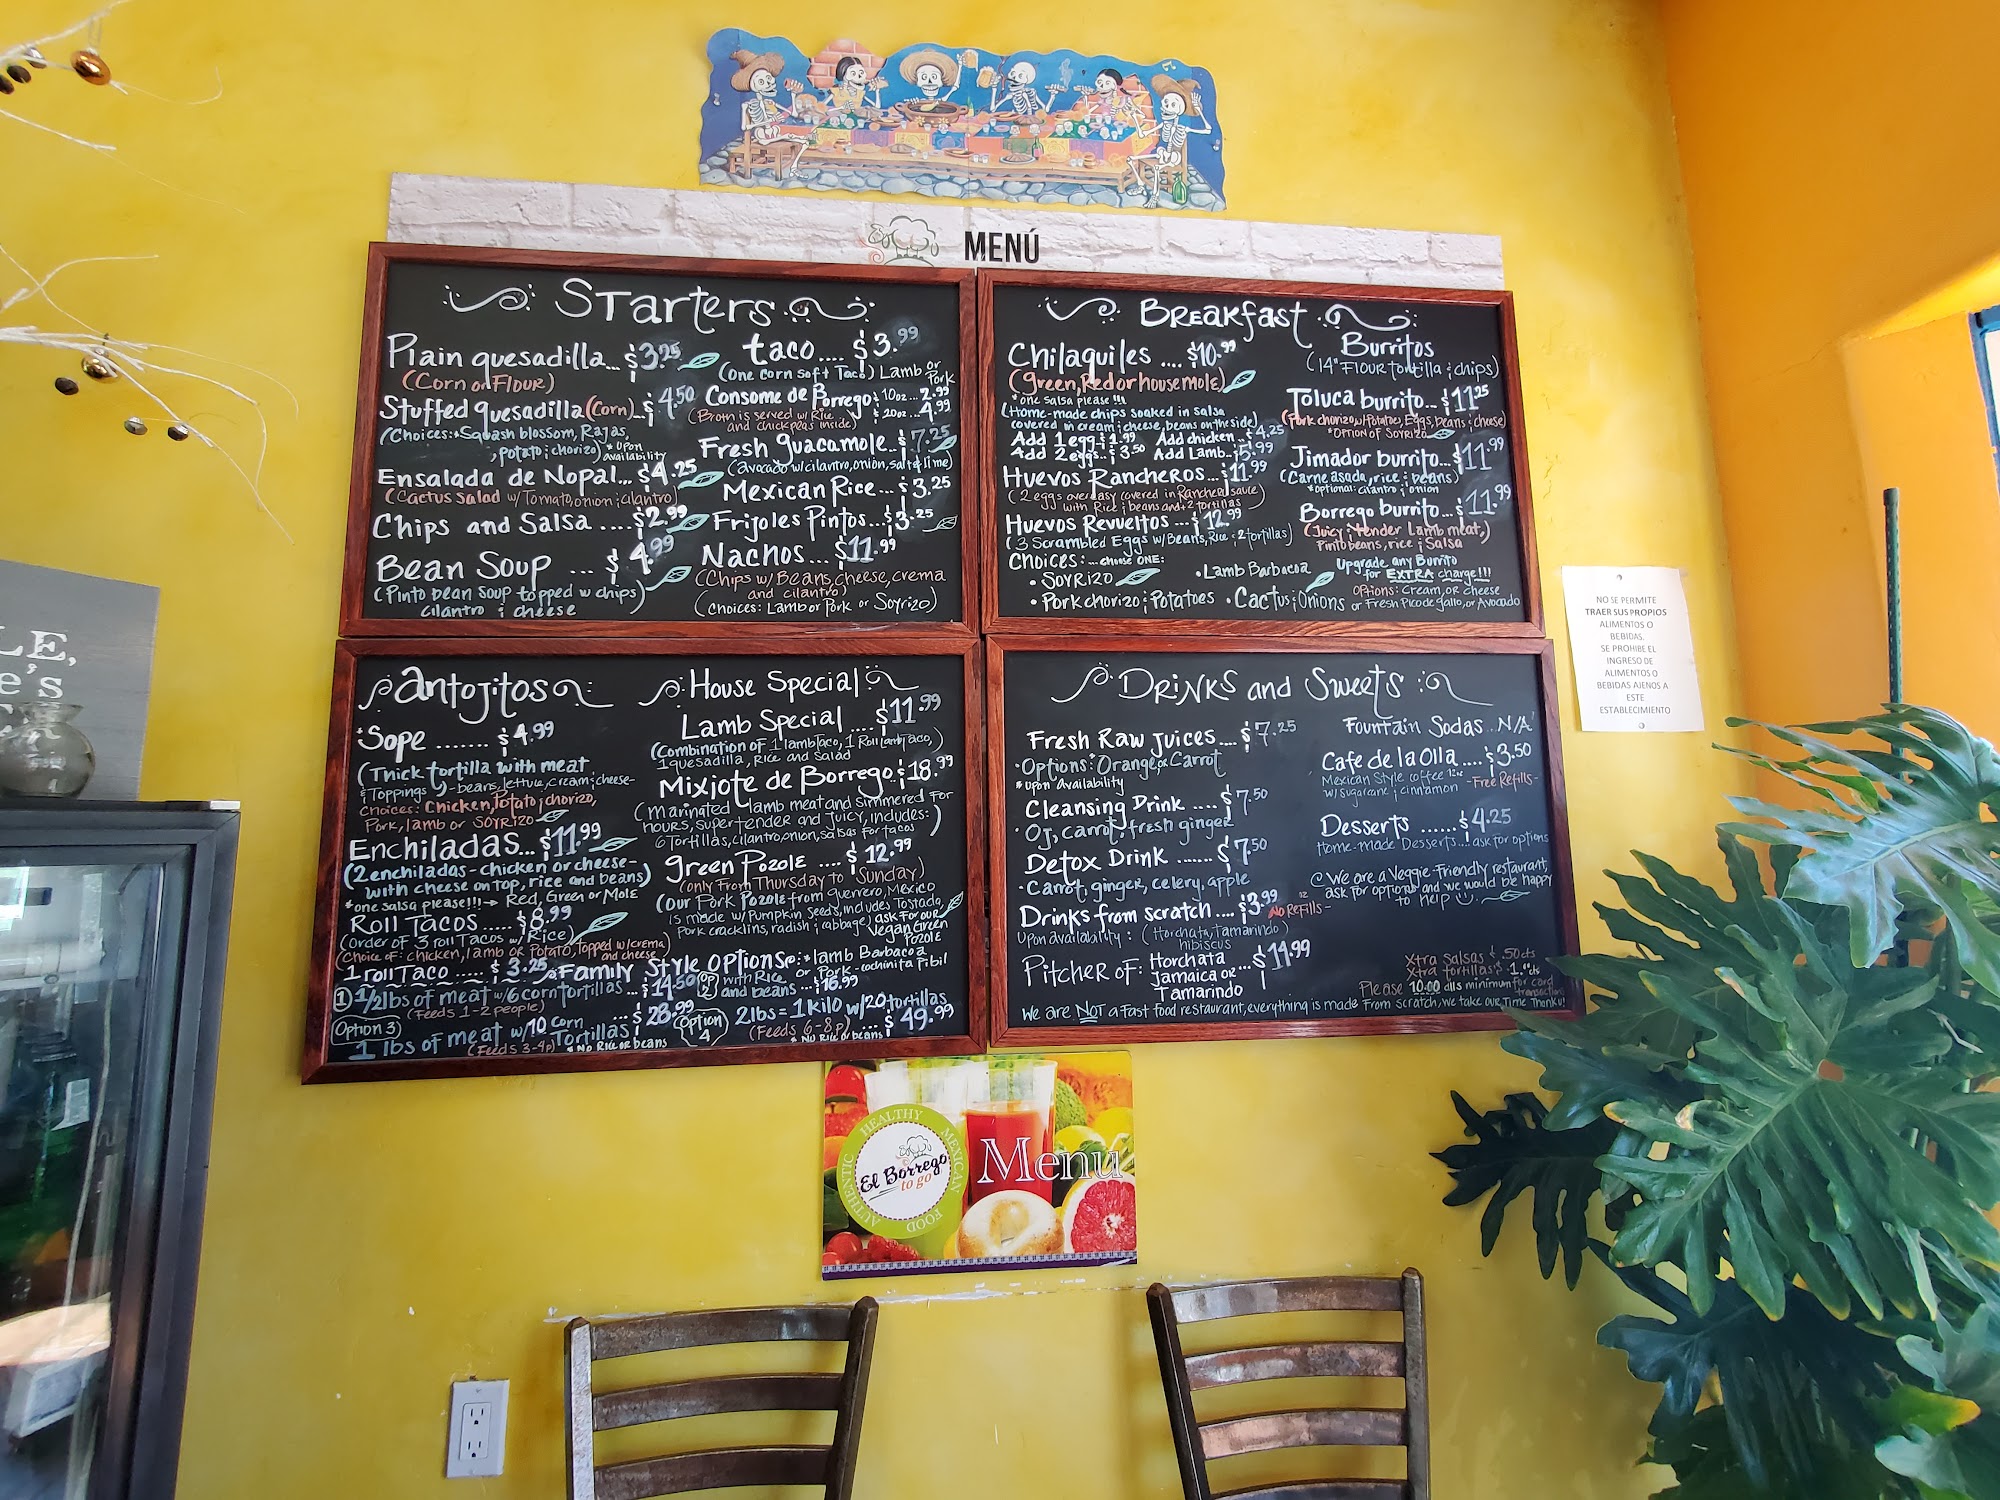 MENÚ
Starters
Plain quesadilla... $3.25
(Corn or Flour)
Stuffed quesadilla (Corn)... $4.50
(Choices: Squash blossom, Rajas,
potato ; chorizo) *upon
availability
Ensalada de Nopal... $4.25
(Cactus salad w/ Tomato, onion ; cilantro)
Chips and Salsa .... $2.99
Bean Soup ... $4.99
(Pinto bean soup topped w chips)
cilantro ; cheese
taco .... $3.99
(One corn soft Taco) Lamb or
Pork
Consome de Borrego 10oz... 2.99
20oz... 4.99
(Broth is served w/ Rice
and chickpeas inside)
Fresh guacamole.. $7.25
(avocado w/ cilantro, onion, salt & lime)
Mexican Rice... $3.25
Frijoles Pintos... $3.25
Nachos ... $11.99
(Chips w/ Beans, cheese, crema
and cilantro)
(Choices: Lamb or Pork or Soyrizo)
Breakfast
Chilaquiles .... $10.99
(green, Red or house mole)
*one salsa please!!!
(Home-made chips soaked in salsa
covered in cream ; cheese, beans on the side)
Add 1 egg. $1.99 Add chicken.. $4.25
Add 2 eggs.. $3.50 Add Lamb.. $5.99
Huevos Rancheros... $11.99
(2 eggs over easy covered in Ranchero sauce
with Rice ; beans and + 2 tortillas)
Huevos Revueltos ... $12.99
(3 Scrambled Eggs w/ Beans, Rice ; 2 tortillas)
Choices: ...choose ONE:
• Soyrizo
• Pork chorizo ; Potatoes
• Lamb Barbacoa
• Cactus ; Onions
Burritos
(14" Flour tortilla ; chips)
Toluca burrito... $11.25
(Pork chorizo w/ Potatoes, Eggs, beans ; cheese)
*OPTION OF SOYRIZO
Jimador burrito... $11.99
(Carne asada, rice ; beans)
*optional: cilantro ; onion
Borrego burrito... $11.99
(Juicy ; tender Lamb meat,)
Pinto beans, rice ; Salsa
Upgrade any Burrito
for EXTRA charge!!!
Options: Cream, or cheese
or Fresh Pico de gallo, or Avocado
antojitos
*Sope ....... $4.99
(Thick tortilla with meat
& Toppings -beans, lettuce, cream ; cheese-
Choices: Chicken, Potato ; chorizo,
Pork, lamb or SOYRIZO
Enchiladas... $11.99
(2 enchiladas - chicken or cheese-
with cheese on top, rice and beans)
*one salsa please!!! → Red, Green or Mole
Roll Tacos ..... $8.99
(Order of 3 roll Tacos w/ Rice)
(Choice of: chicken, lamb or Potato, topped w/ crema)
and cheese
1 roll Taco ..... $3.25
House Special
Lamb Special ... $11.99
(Combination of 1 lamb Taco, 1 Roll lamb Taco,)
1 quesadilla, Rice and Salad
Mixiote de Borrego. $18.99
(Marinated lamb meat and simmered For
hours, super tender and juicy, includes:)
6 Tortillas, cilantro, onion, salsas for tacos
green Pozole .... $12.99
(only From Thursday to Sunday)
(our Pork Pozole from Guerrero, Mexico
is made w/ Pumpkin Seeds, includes Tostada,
pork cracklins, radish ; cabbage) ask For our
Vegan Green
Pozole
Family Style options: *lamb Barbacoa
or Pork-cochinita Pibil
1 1/2 lbs of meat w/6 corn tortillas ... $14.50
(Feeds 1-2 people)
2 with Rice
and beans ... $16.99
Option 3)
1 lbs of meat w/10 corn
tortillas ... $28.99
(Feeds 3-4 p) * No Rice or beans
Option
4
2 lbs = 1 kilo w/20 tortillas
(Feeds 6-8 p) ... $49.99
* No Rice or beans
Drinks and Sweets
Fresh Raw juices.... $7.25
• Options: Orange, or Carrot
*upon Availability
Cleansing Drink .... $7.50
• OJ, carrot, fresh ginger
Detox Drink ...... $7.50
• Carrot, ginger, celery, apple
Drinks from scratch .... $3.99 NO Refills-
Upon availability: (Horchata, Tamarindo)
hibiscus
Pitcher of: Horchata
Jamaica or
Tamarindo ... $14.99
Fountain Sodas.. N/A
Cafe de la Olla .... $3.50
Mexican Style coffee 12oz
w/ sugarcane ; cinnamon -Free Refills-
Desserts ...... $4.25
Home-made Desserts ... ask for options
We are a Veggie-Friendly restaurant,
ask for options and we would be happy
to help
Xtra salsas ¢ .50cts
Xtra tortillas $1.
Please 10.00 dlls minimum for card
transactions
We are NOT a Fast food restaurant, everything is made From scratch, we take our Time Thanku!
NO SE PERMITE
TRAER SUS PROPIOS
ALIMENTOS O
BEBIDAS.
SE PROHIBE EL
INGRESO DE
ALIMENTOS O
BEBIDAS AJENOS A
ESTE
ESTABLECIMIENTO
LE,
e's
AUTHENTIC HEALTHY MEXICAN FOOD
El Borrego
to go
Menu